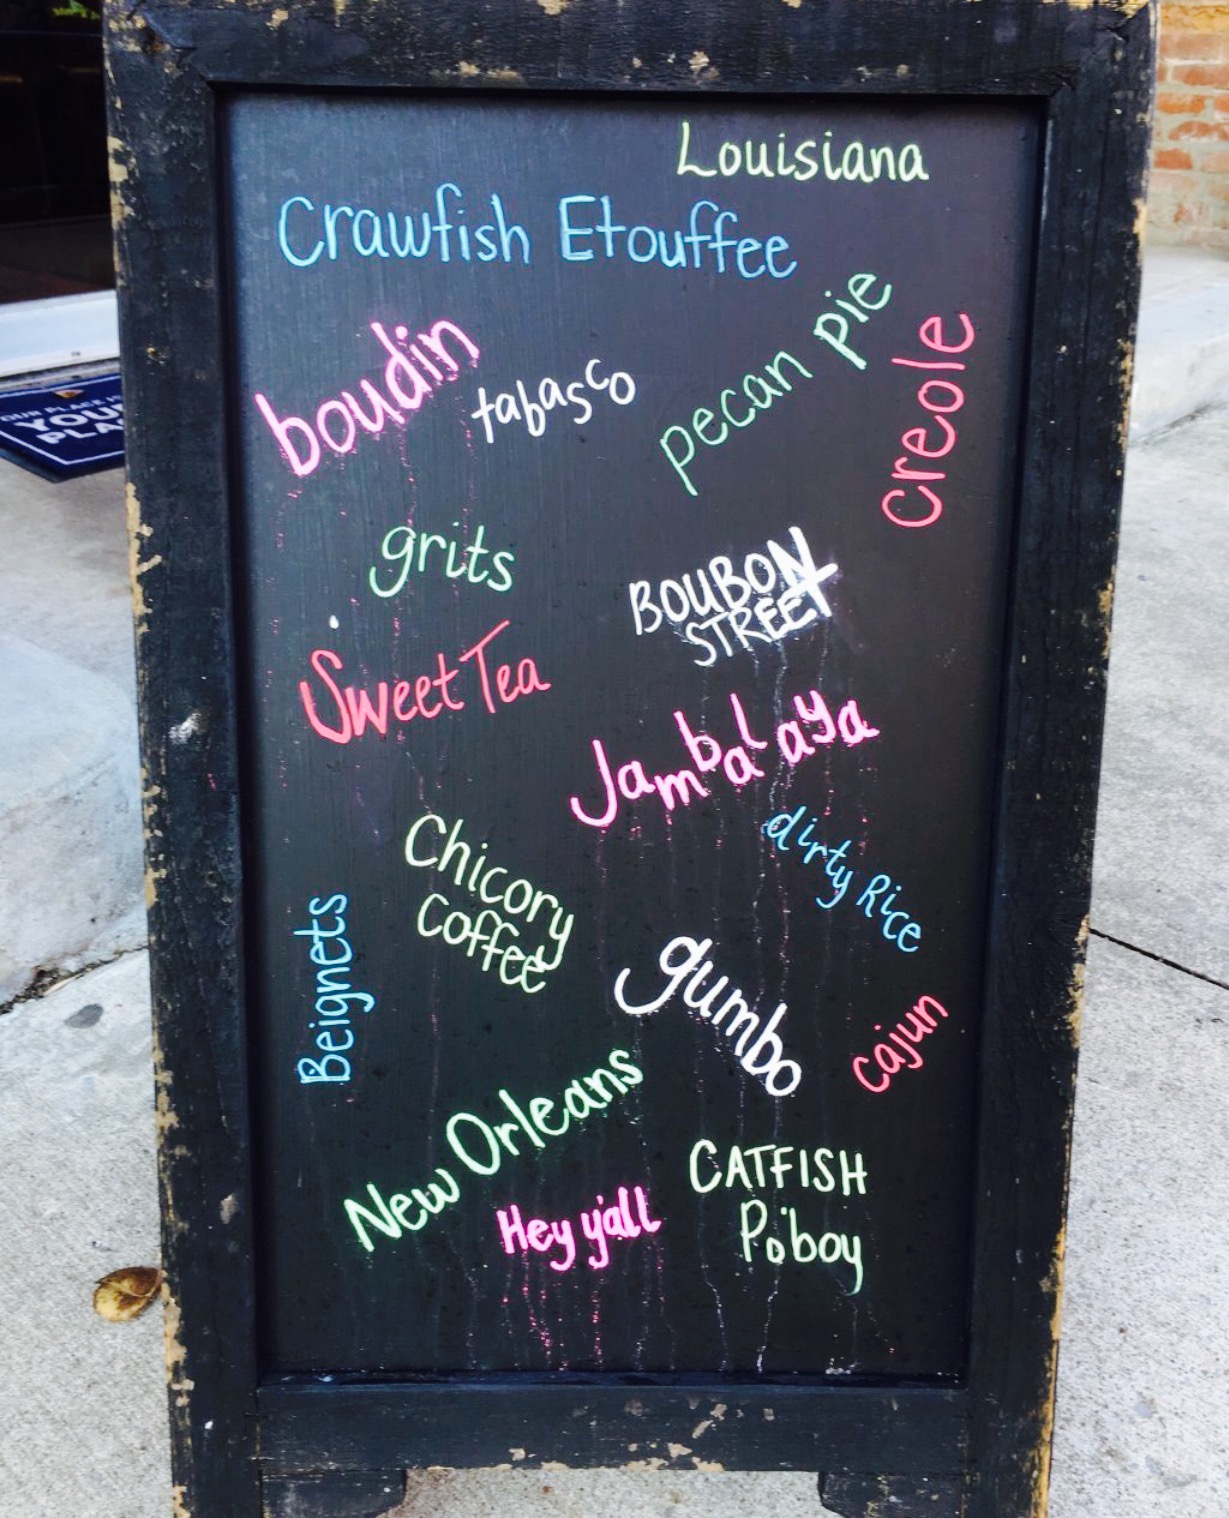 Louisiana
Crawfish Etouffee
boudin
tabasco
pecan pie
creole
grits
BOUBON
STREET
Sweet Tea
Jambalaya
dirty Rice
Chicory
Coffee
Beignets
gumbo
cajun
New Orleans
Hey y'all
CATFISH
Po'boy
YOUR